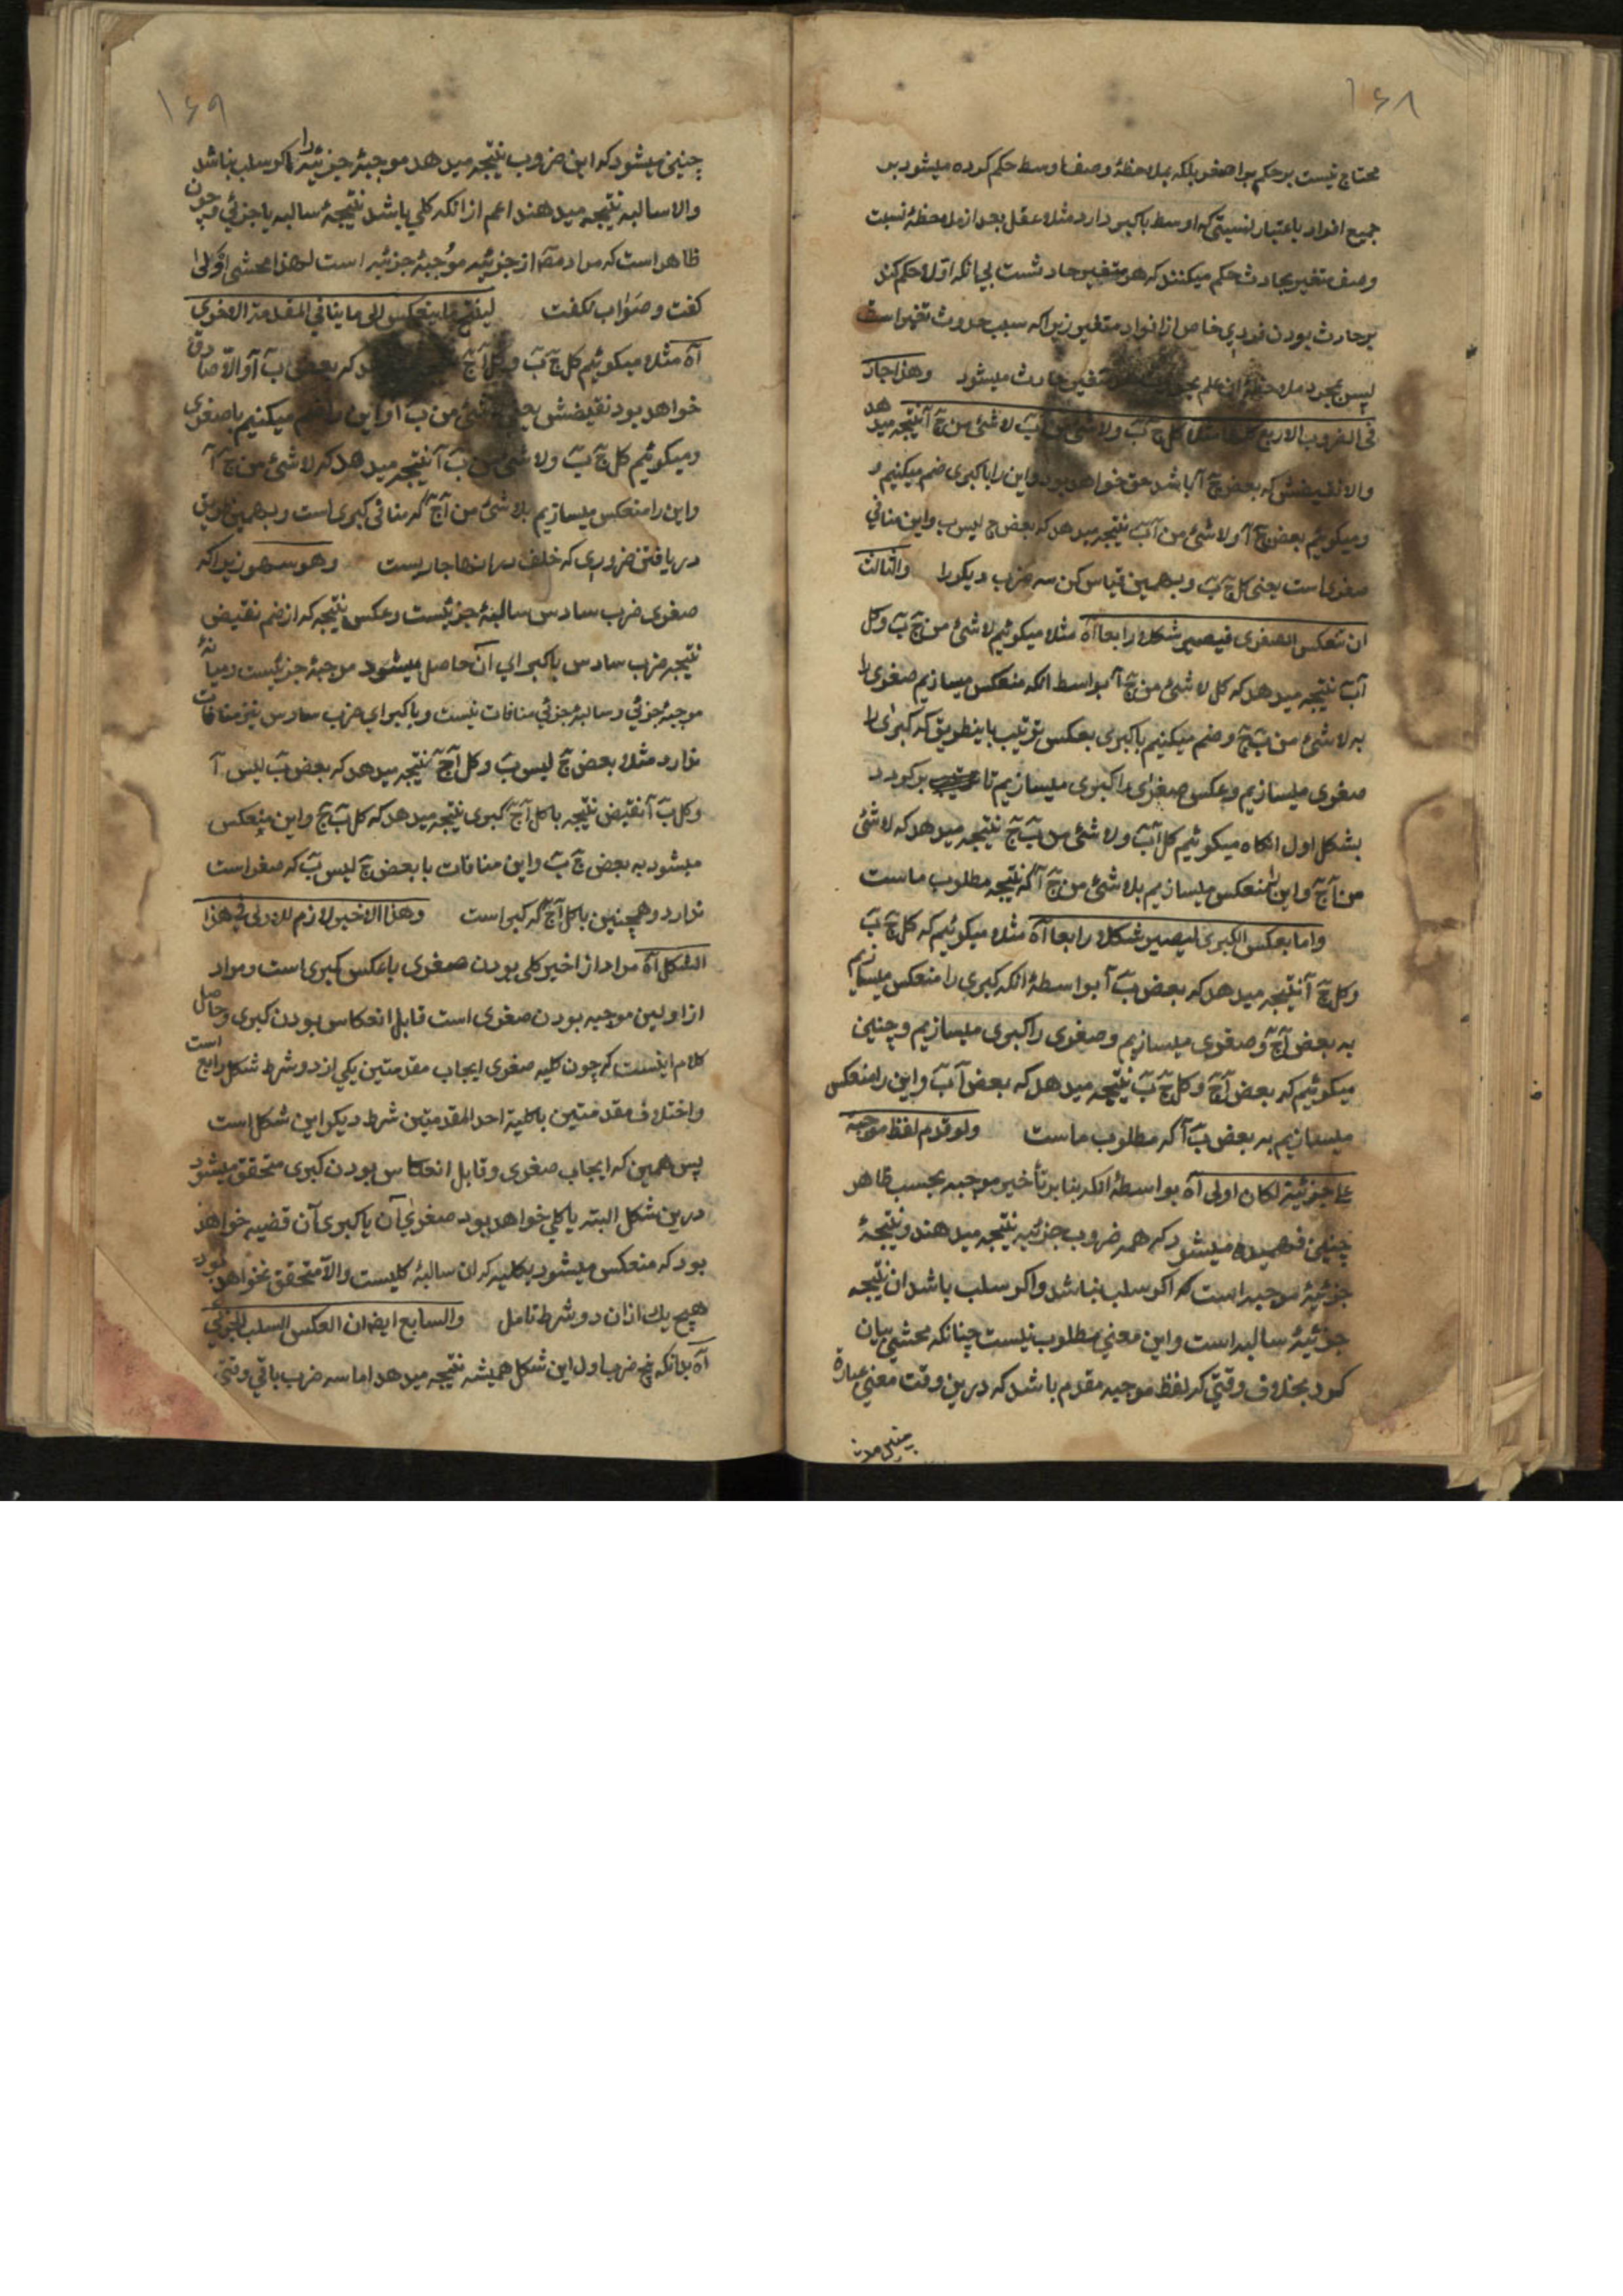 ۱۶۸
محتاج نیست بر حکم بر اصغر بلکه بملاحظهٔ وصف اوسط حکم کرده میشود بر
جمیع افراد باعتبار نسبتی که اوسط باکبر دارد مثلا عقل بعد از ملاحظهٔ نسبت
وصف تغیر بحادث حکم میکنند که هر متغیر حادثست بی انکه اوّلا حکم کند
بر حادث بودن فردی خاص از افراد متغیر زیرا که سبب حدوث تغیر است
پس بمجرد ملاحظهٔ این علم متغیر حادث میشود وهذا جار
فی الضروب الاربع کلها مثلا کل ج ب ولا شئ من آ ب لا شئ من ج آ نتیجه میدهد
والا نقیضش که بعض ج آ باشد حق خواهد بود و این را با کبری ضم میکنیم و
ومیکوئیم بعض ج آ ولا شئ من آ ب نتیجه میدهد که بعض ج لیس ب واین منافی
صغری است یعنی کل ج ب وبهمین قیاس کن سه ضرب دیکر را والثالث
ان تنعکس الصغری فیصیر شکلا رابعا آه مثلا میکوئیم لا شئ من ج ب وکل
آ ب نتیجه میدهد که کل لا شئ من ج آ بواسط انکه منعکس میسازیم صغری را
به لا شئ من ب ج وضم میکنیم باکبری بعکس ترتیب باینطریق که کبرای را
صغری میسازیم وعکس صغرای را کبری میسازیم تا بر کردد
بشکل اول انکاه میکوئیم کل آ ب ولا شئ من ب ج نتیجه میدهد که لا شئ
من آ ج واین را منعکس میسازیم بلا شئ من ج آ که نتیجه مطلوب ماست
واما بعکس الکبری لیصیر شکلا رابعا آه مثلا میکوئیم که کل ج ب
وکل ج آ نتیجه میدهد که بعض ب آ بواسطهٔ انکه کبری را منعکس میسازیم
به بعض آ ج وصغری میسازیم وصغری را کبری میسازیم وچنین
میکوئیم که بعض آ ج وکل ج ب نتیجه میدهد که بعض آ ب واین را منعکس
میسازیم به بعض ب آ که مطلوب ماست ولو قدم لفظ موجبة
علی جزئیة لکان اولی آه بواسطهٔ انکه بنا بر تأخیر موجبه بحسب ظاهر
چنین فهمیده میشود که همه ضروب جزئیه نتیجه میدهند ونتیجهٔ
جزئیهٔ موجبه است که اکر سلب نباشد واکر سلب باشد ان نتیجه
جزئیهٔ سالبه است واین معنی مطلوب نیست چنانکه محشی بیان
کرد بخلاف وقتی که لفظ موجبه مقدم باشد که درین وقت معنی عبارة
۱۶۹
چنین میشود که این ضروب نتیجه میدهد موجبهٔ جزئیه را اکر سلب نباشد
والا سالبه نتیجه میدهند اعم از انکه کلی باشد نتیجهٔ سالبه یا جزئی و چون
ظاهر است که مراد مصه از جزئیه موجبهٔ جزئیه است لهذا محشی اولی
کفت وصواب نکفت لینتج ما ینعکس الی ما ینافی المقدمة الاخری
آه مثلا میکوئیم کل ج ب وکل آ ج که بعض ب آ والّا صادق
خواهد بود نقیضش یعنی لا شئ من ب آ واین را ضم میکنیم باصغری
ومیکوئیم کل ج ب ولا شئ من ب آ نتیجه میدهد که لا شئ من ج آ
واین را منعکس میسازیم بلا شئ من آ ج که منافی کبری است وبهمین طریق
دریافتن ضروری که خلف در انها جاریست وهو سهو زیرا که
صغری ضرب سادس سالبهٔ جزئیست وعکس نتیجه که از ضم نقیض
نتیجه ضرب سادس باکبرای آن حاصل میشود موجبهٔ جزئیست ومیانهٔ
موجبهٔ جزئی وسالبهٔ جزئی منافات نیست وباکبرای ضرب سادس نیز منافات
ندارد مثلا بعض ج لیس ب وکل آ ج نتیجه میدهد که بعض ب لیس آ
وکل ب آ نقیض نتیجه با کل آ ج کبری نتیجه میدهد که کل ب ج واین منعکس
میشود به بعض ج ب واین منافات با بعض ج لیس ب که صغر است
ندارد وهمچنین با کل آ ج که کبر است وهذا الاخیر لازم للاولی فی هذا
الشکل آه مراد از اخیر کلی بودن صغری با عکس کبری است ومراد
از اولین موجبه بودن صغری است قابل انعکاس بودن کبری وحاصل
کلام اینست که چون کلیه صغری ایجاب مقدمتین یکی از دو شرط شکل رابع است
واختلاف مقدمتین باکلیة احد المقدمتین شرط دیکر این شکل است
پس همین که ایجاب صغری وقابل انعکاس بودن کبری متحقق میشود
درین شکل البته یا کلی خواهد بود صغرای آن یا کبری آن قضیه خواهد
بود که منعکس میشود بکلیه که ان سالبهٔ کلیست والّا متحقق نخواهد بود
هیچ یك از ان دو شرط تامل والسابع ایضا ان العکس السلب الجزئی
آه بدانکه پنج ضرب اول این شکل همیشه نتیجه میدهد اما سه ضرب باقی وقتی